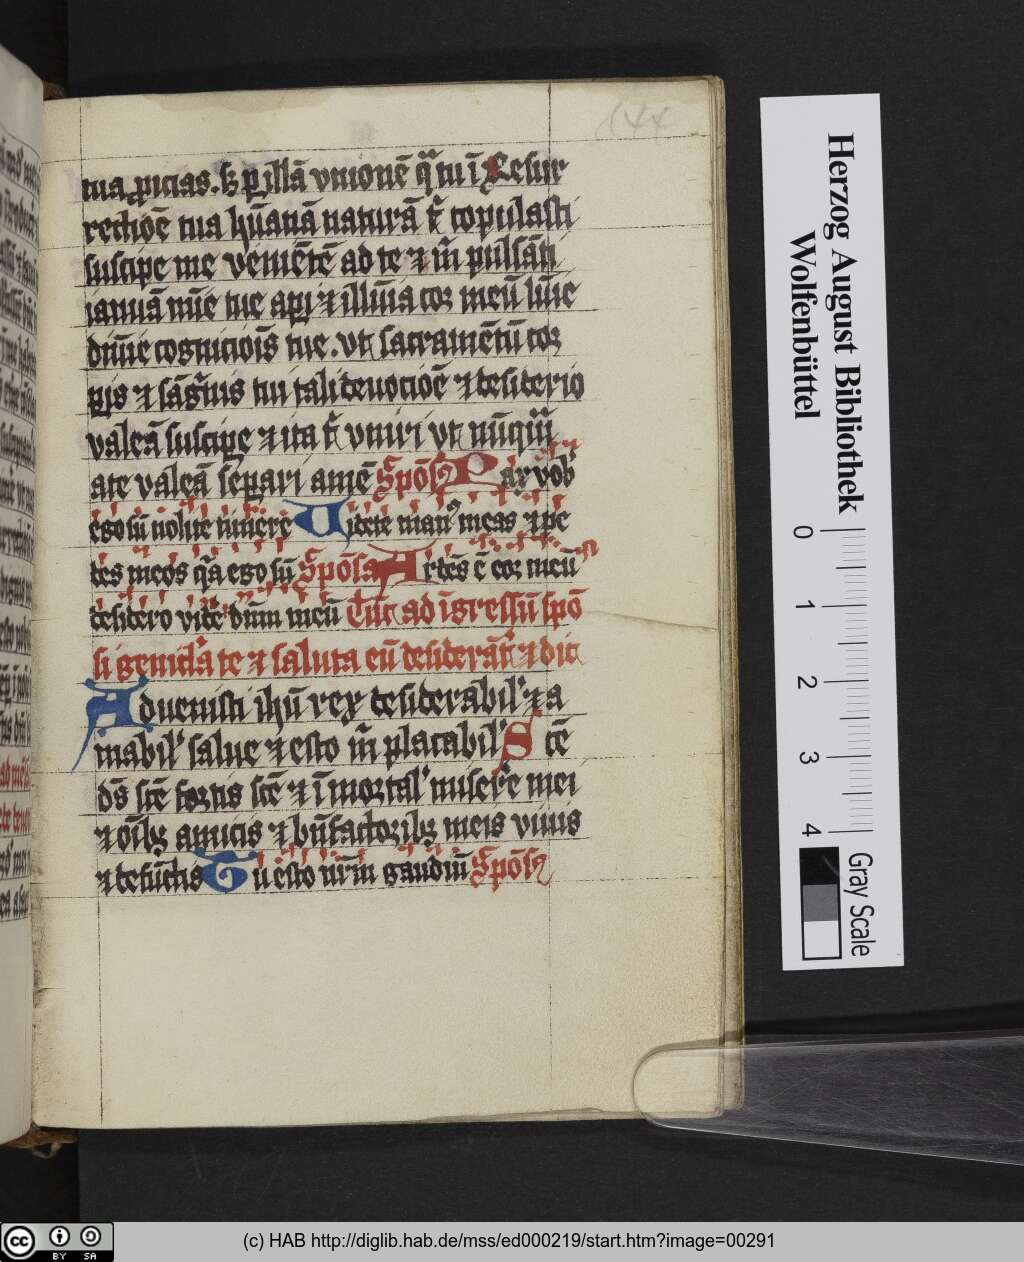 144
tua ꝓicias. sꝫ ꝑ illā vnionē q̄ tu ī Resur
rectiōe tua hūanā naturā t᷑ copulasti
suscipe me veniētē ad te ⁊ m̄ pulsāti
ianuā mīe tue aꝑi ⁊ illūia cor meū lūie
diuīe cognicionis tue. vt sacramētū cor
ꝑis ⁊ sāguis tui tali deuociōe ⁊ desiderio
valeā suscipe ⁊ ita t᷑ vniri vt nūq̄
a te valeā separi amē Spōsꝰ Pax vob
ego sū nolite timere Videte manꝰ meas ⁊ pe
des meos q̄a ego sū Spōsa Ardēs ē cor meū
desidero videre dn̄m meū Tūc ad īgressū spō
si genicla te ⁊ saluta eū desiderāt ⁊ dic
Aduenisti ihū rex desiderabil' ⁊ a
mabil' salue ⁊ esto m̄ placabil' Scē
ds̄ scē fortis scē ⁊ īmortal' misere mei
⁊ oīb; amicis ⁊ bn̄factorib; meis viuis
⁊ defūctis Tu esto nr̄m gaudiū Spōsꝰ
Herzog August Bibliothek
Wolfenbüttel
0 1 2 3 4
Gray Scale
cc BY SA
(c) HAB http://diglib.hab.de/mss/ed000219/start.htm?image=00291